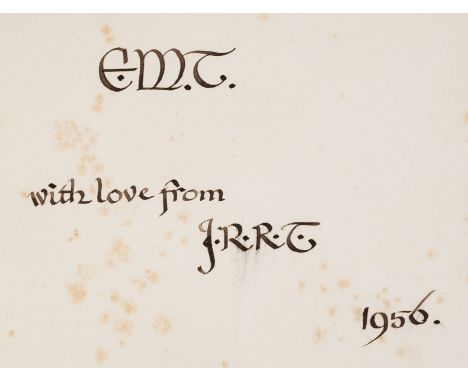 E.M.T.
with love from
J.R.R.T.
1956.